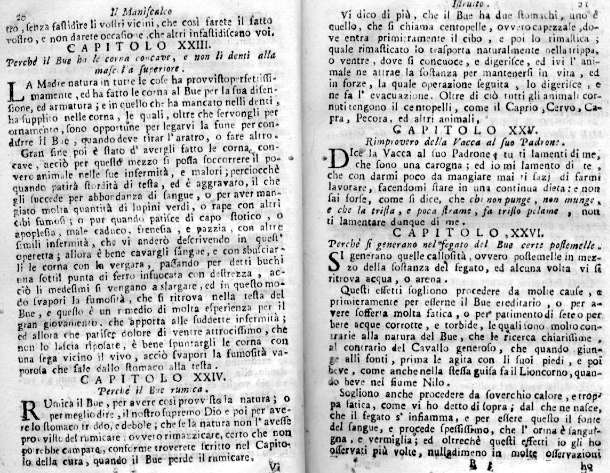 20 Il Maniscalco
ro, senza fastidire li vostri vicini, che così farete il fatto
vostro, e non darete occasione, che altri infastidiscano voi.
CAPITOLO XXIII.
Perchè il Bue ha le corna concave, e non li denti alla
mascella superiore.
LA Madre natura in tutte le cose ha provvisto perfettissi-
mamente, ed ha fatto le corna al Bue per la sua difen-
sione, ed armatura; e in quello che ha mancato nelli denti,
ha supplito nelle corna, le quali, oltre che servongli per
ornamento, sono opportune per legarvi la fune per con-
durlo, e quando deve tirar l'aratro, o fare altro.
Gran fine poi è stato d'avergli fatto le corna con-
cave, acciò per quello mezzo si possa soccorrere il po-
vero animale nelle sue infermità, e malori; perciocchè
quando patirà stordità di testa, ed è aggravato, il che
gli succede per abbondanza di sangue, o per aver man-
giato molta quantità di lupini verdi, o rape con altri
cibi fumosi; o pur quando patisce di capo storico, o
apoplesia, male caduco, frenesia, e pazzia, con altre
simili infermità, che vi anderò descrivendo in quest'
operetta; allora è bene cavargli sangue, e con sbusciar-
li le corna con la vergara, passando per detti buchi
una sottil punta di ferro infuocata con destrezza, ac-
ciò li medesimi si vengano a slargare, ed in questo mo-
do svapori la fumosità, che si ritrova nella testa del
Bue, e questo è un rimedio di molta esperienza per il
gran giovamento, che apporta alle suddette infermità;
ed allora che patisce dolore di ventre atrocissimo, che
non lo lascia riposare, è bene spuntargli le corna con
una sega vicino il vivo, acciò svapori la fumosità va-
porosa che sale dallo stomaco alla testa.
CAPITOLO XXIV.
Perchè il Bue rumica.
RUmica il Bue, per avere così provvista la natura; o
per meglio dire, il nostro supremo Dio e poi per ave-
re lo stomaco freddo, e debole; che se la natura non l'avesse
provvisto del rumicare, ovvero rimazzicare, certo che non
potrebbe campare, conforme troverete scritto nel Capito-
lo della cura, quando il Bue perde il rumicare.
Vi
Istruito. 21
Vi dico di più, che il Bue ha due stomachi, uno è
quello, che si chiama centopelle, ovvero capezzale, do-
ve entra primieramente il cibo, e poi lo rimastica;
quale rimasticato lo trasporta naturalmente nella trippa,
o ventre, dove si concuoce, e digerisce, ed ivi l'ani-
male ne attrae la sostanza per mantenersi in vita, ed
in forze, la quale operazione seguita, lo digerisce, e
ne fa l'evacuazione. Oltre di ciò tutti gli animali cor-
nuti tengono il centopelli, come il Caprio, Cervo, Ca-
pra, Pecora, ed altri animali.
CAPITOLO XXV.
Rimprovero della Vacca al suo Padrone.
DIce la Vacca al suo Padrone: tu ti lamenti di me,
che sono una carogna; ed io mi lamento di te,
che con darmi poco da mangiare mai ti sazj di farmi
lavorare, facendomi stare in una continua dieta: e non
sai forse, come si dice, che chi non punge, non munge,
e che la trista, e poca strame, fa tristo pelame, non
ti lamentare dunque di me.
CAPITOLO, XXVI.
Perchè si generano nel fegato del Bue certe postemelle.
SI generano quelle callosità, ovvero postemelle in mez-
zo della sostanza del fegato, ed alcuna volta vi si
ritrova acqua, o arena.
Questi effetti sogliono procedere da molte cause, e
primieramente per esserne il Bue ereditario, o per a-
ver sofferta molta fatica, o per patimento di sete o per
bere acque corrotte, e torbide, le quali sono molto con-
trarie alla natura del Bue, che le ricerca chiarissime,
al contrario del Cavallo generoso, che quando giun-
ge alli fonti, prima le agita con li suoi piedi, e poi
beve, come anche nella stessa guisa fa il Lioncorno, quan-
do beve nel fiume Nilo.
Sogliono anche procedere da soverchio calore, e trop-
pa fatica, come vi ho detto di sopra; dal che ne nasce,
che il fegato s'infiamma, e per essere questo il fonte
del sangue, e procede spessissimo, che l'orina è sangui-
gna, e vermiglia; ed oltrechè questi effetti io gli ho
osservati più volte, nulladimeno in molte osservazioni
B 3 ho